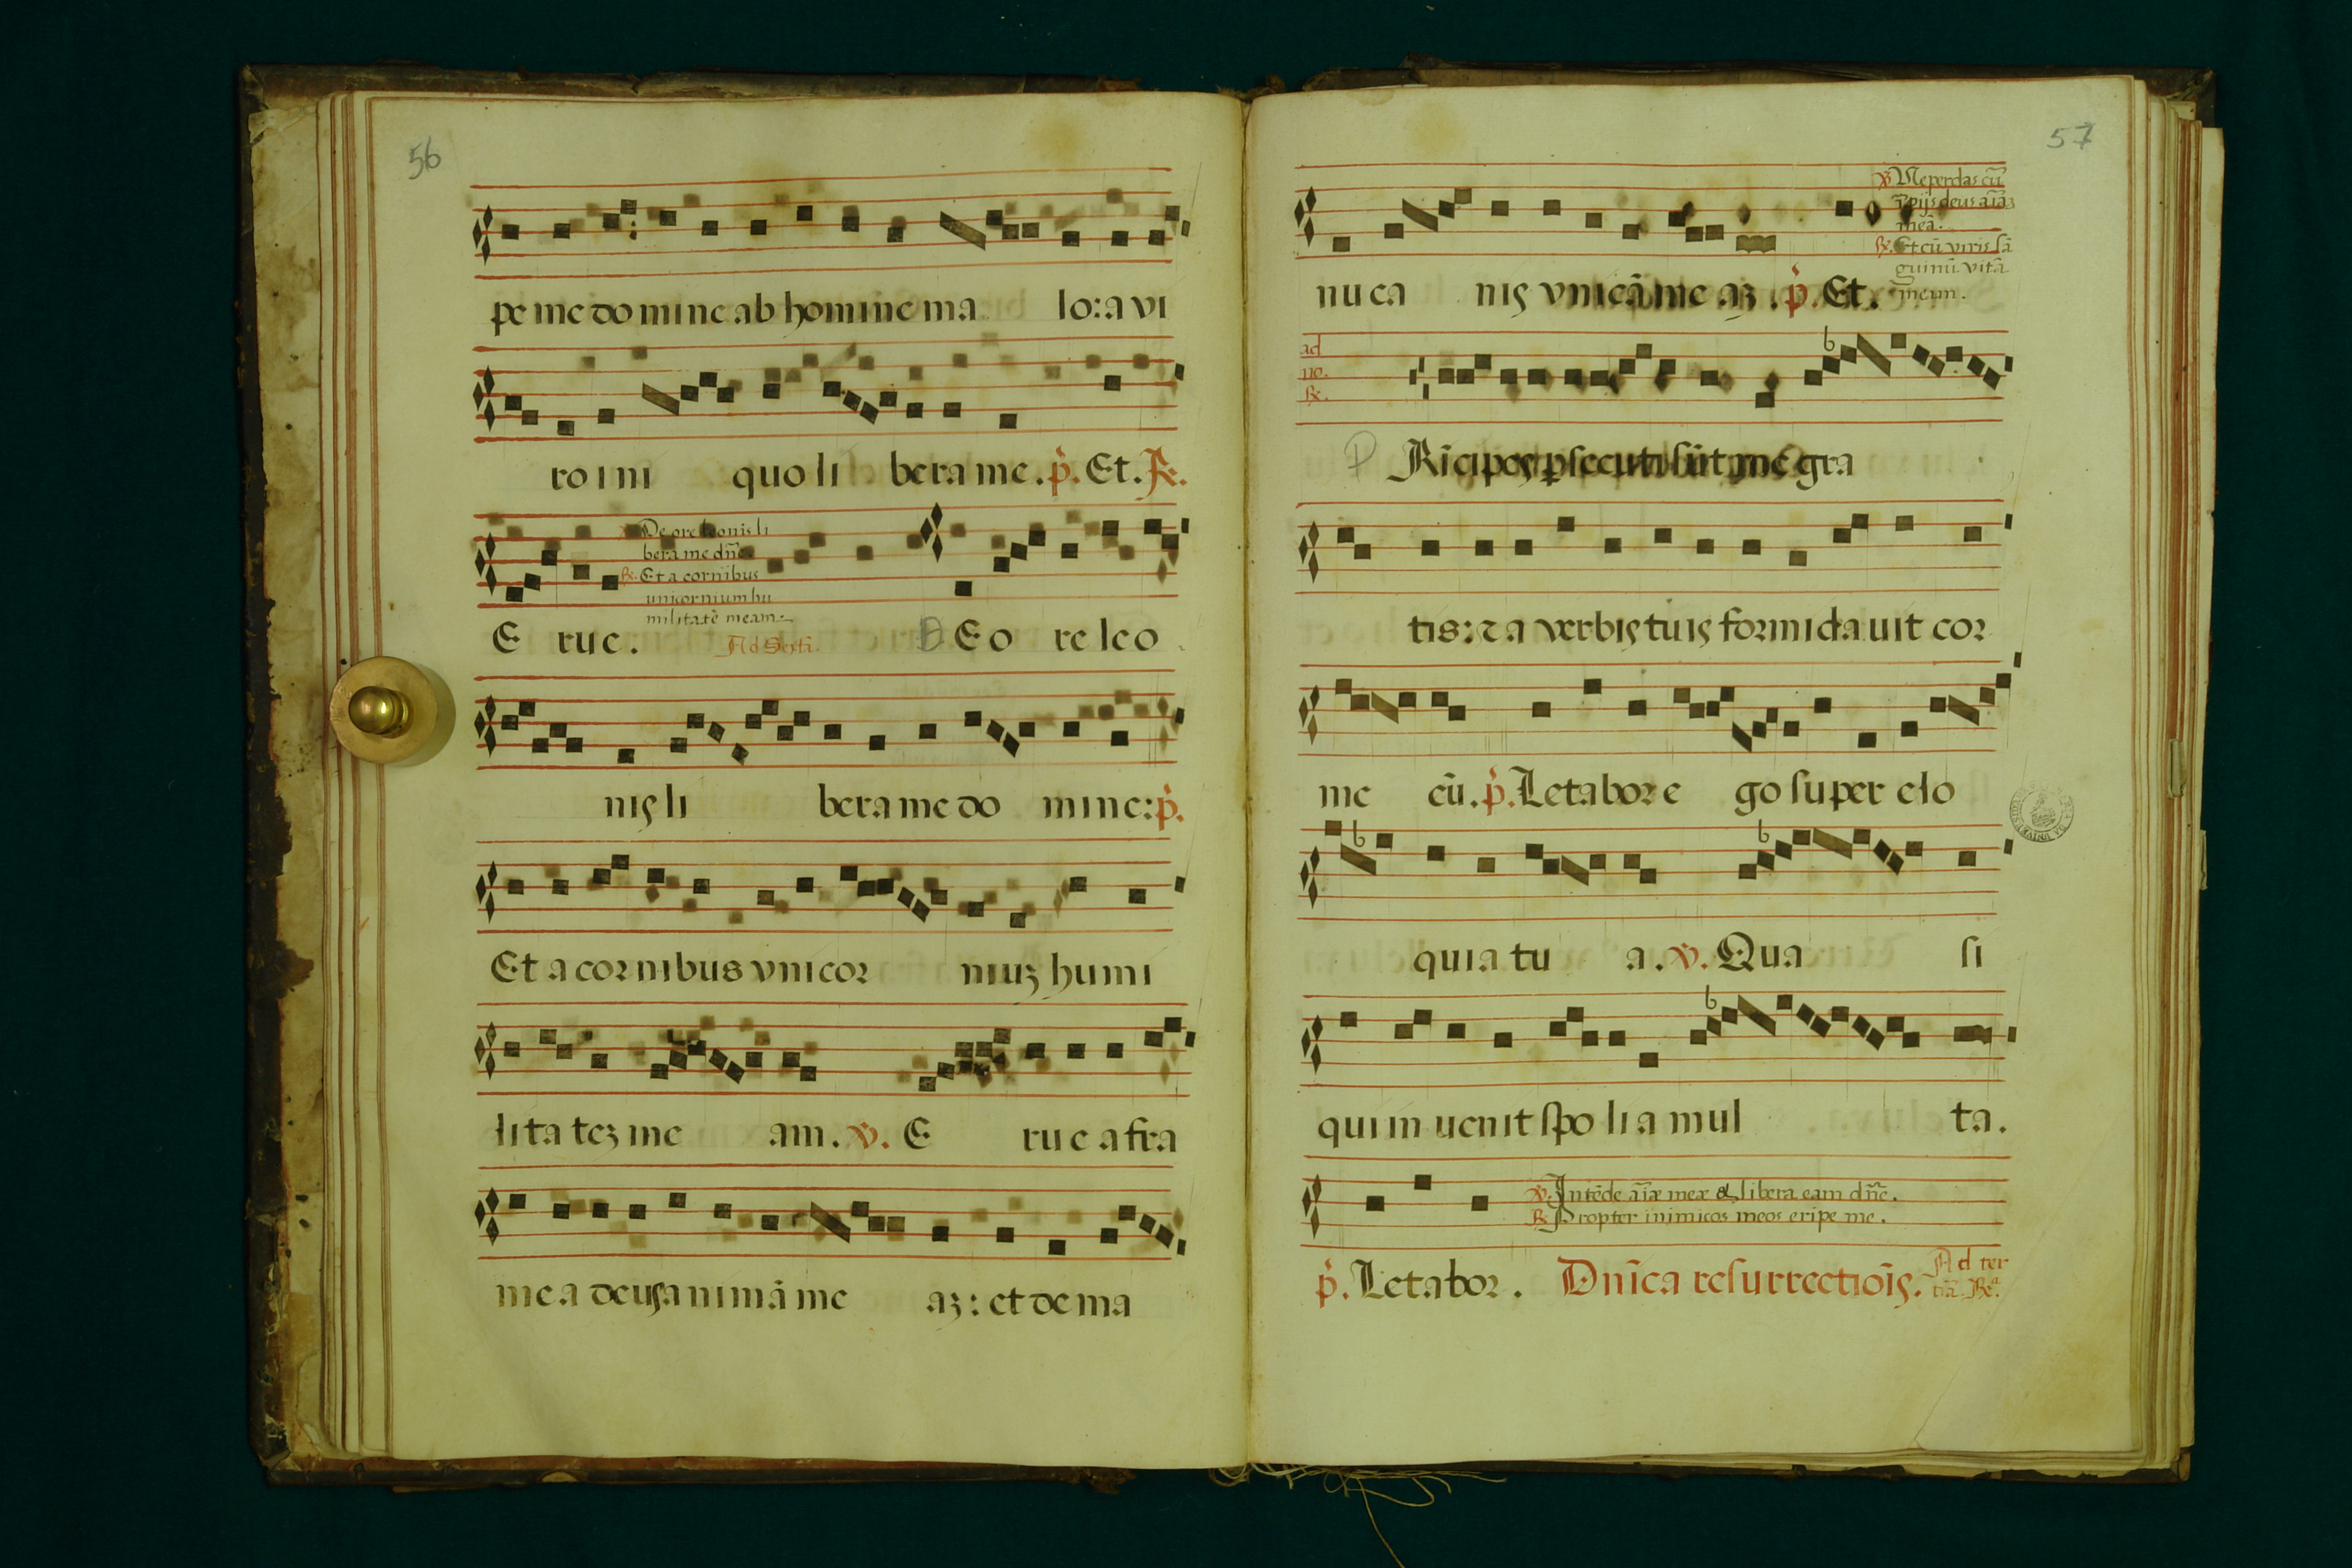 56
pe me do mine ab homine ma lo: a vi
ro i ni quo li bera me. p̄. Et. ℟.
De ore leonis li
bera me dn̄e.
℟. Et a cornibus
unicornium hu
militatē meam.
E rue. Ad Sextā. D E o re leo
nis li bera me do mine: p̄.
Et a cornibus vnicor niuʒ humi
lita teʒ me am. ℣. E rue a fra
mea deus animā me aʒ: et de ma
57
℣. Ne perdas cū
īpijs deus aīaʒ
meā.
℟. Et cū viris sā
guinū vitā
meam.
nu ca nis vnicā me aʒ. p̄. Et.
ad
no.
℟.
P Rīcipes ꝑsecuti sūt me gra
tis: ⁊ a verbis tuis formidauit cor
me ū. p̄. Letabor e go super elo
quia tu a. ℣. Qua si
qui in uenit spo lia mul ta.
℣. Intēde aīæ meæ & libera eam dn̄e.
℟. Propter inimicos meos eripe me.
p̄. Letabor. Dn̄ica resurrectiōis. Ad ter
tiā. ℟.ᵃ